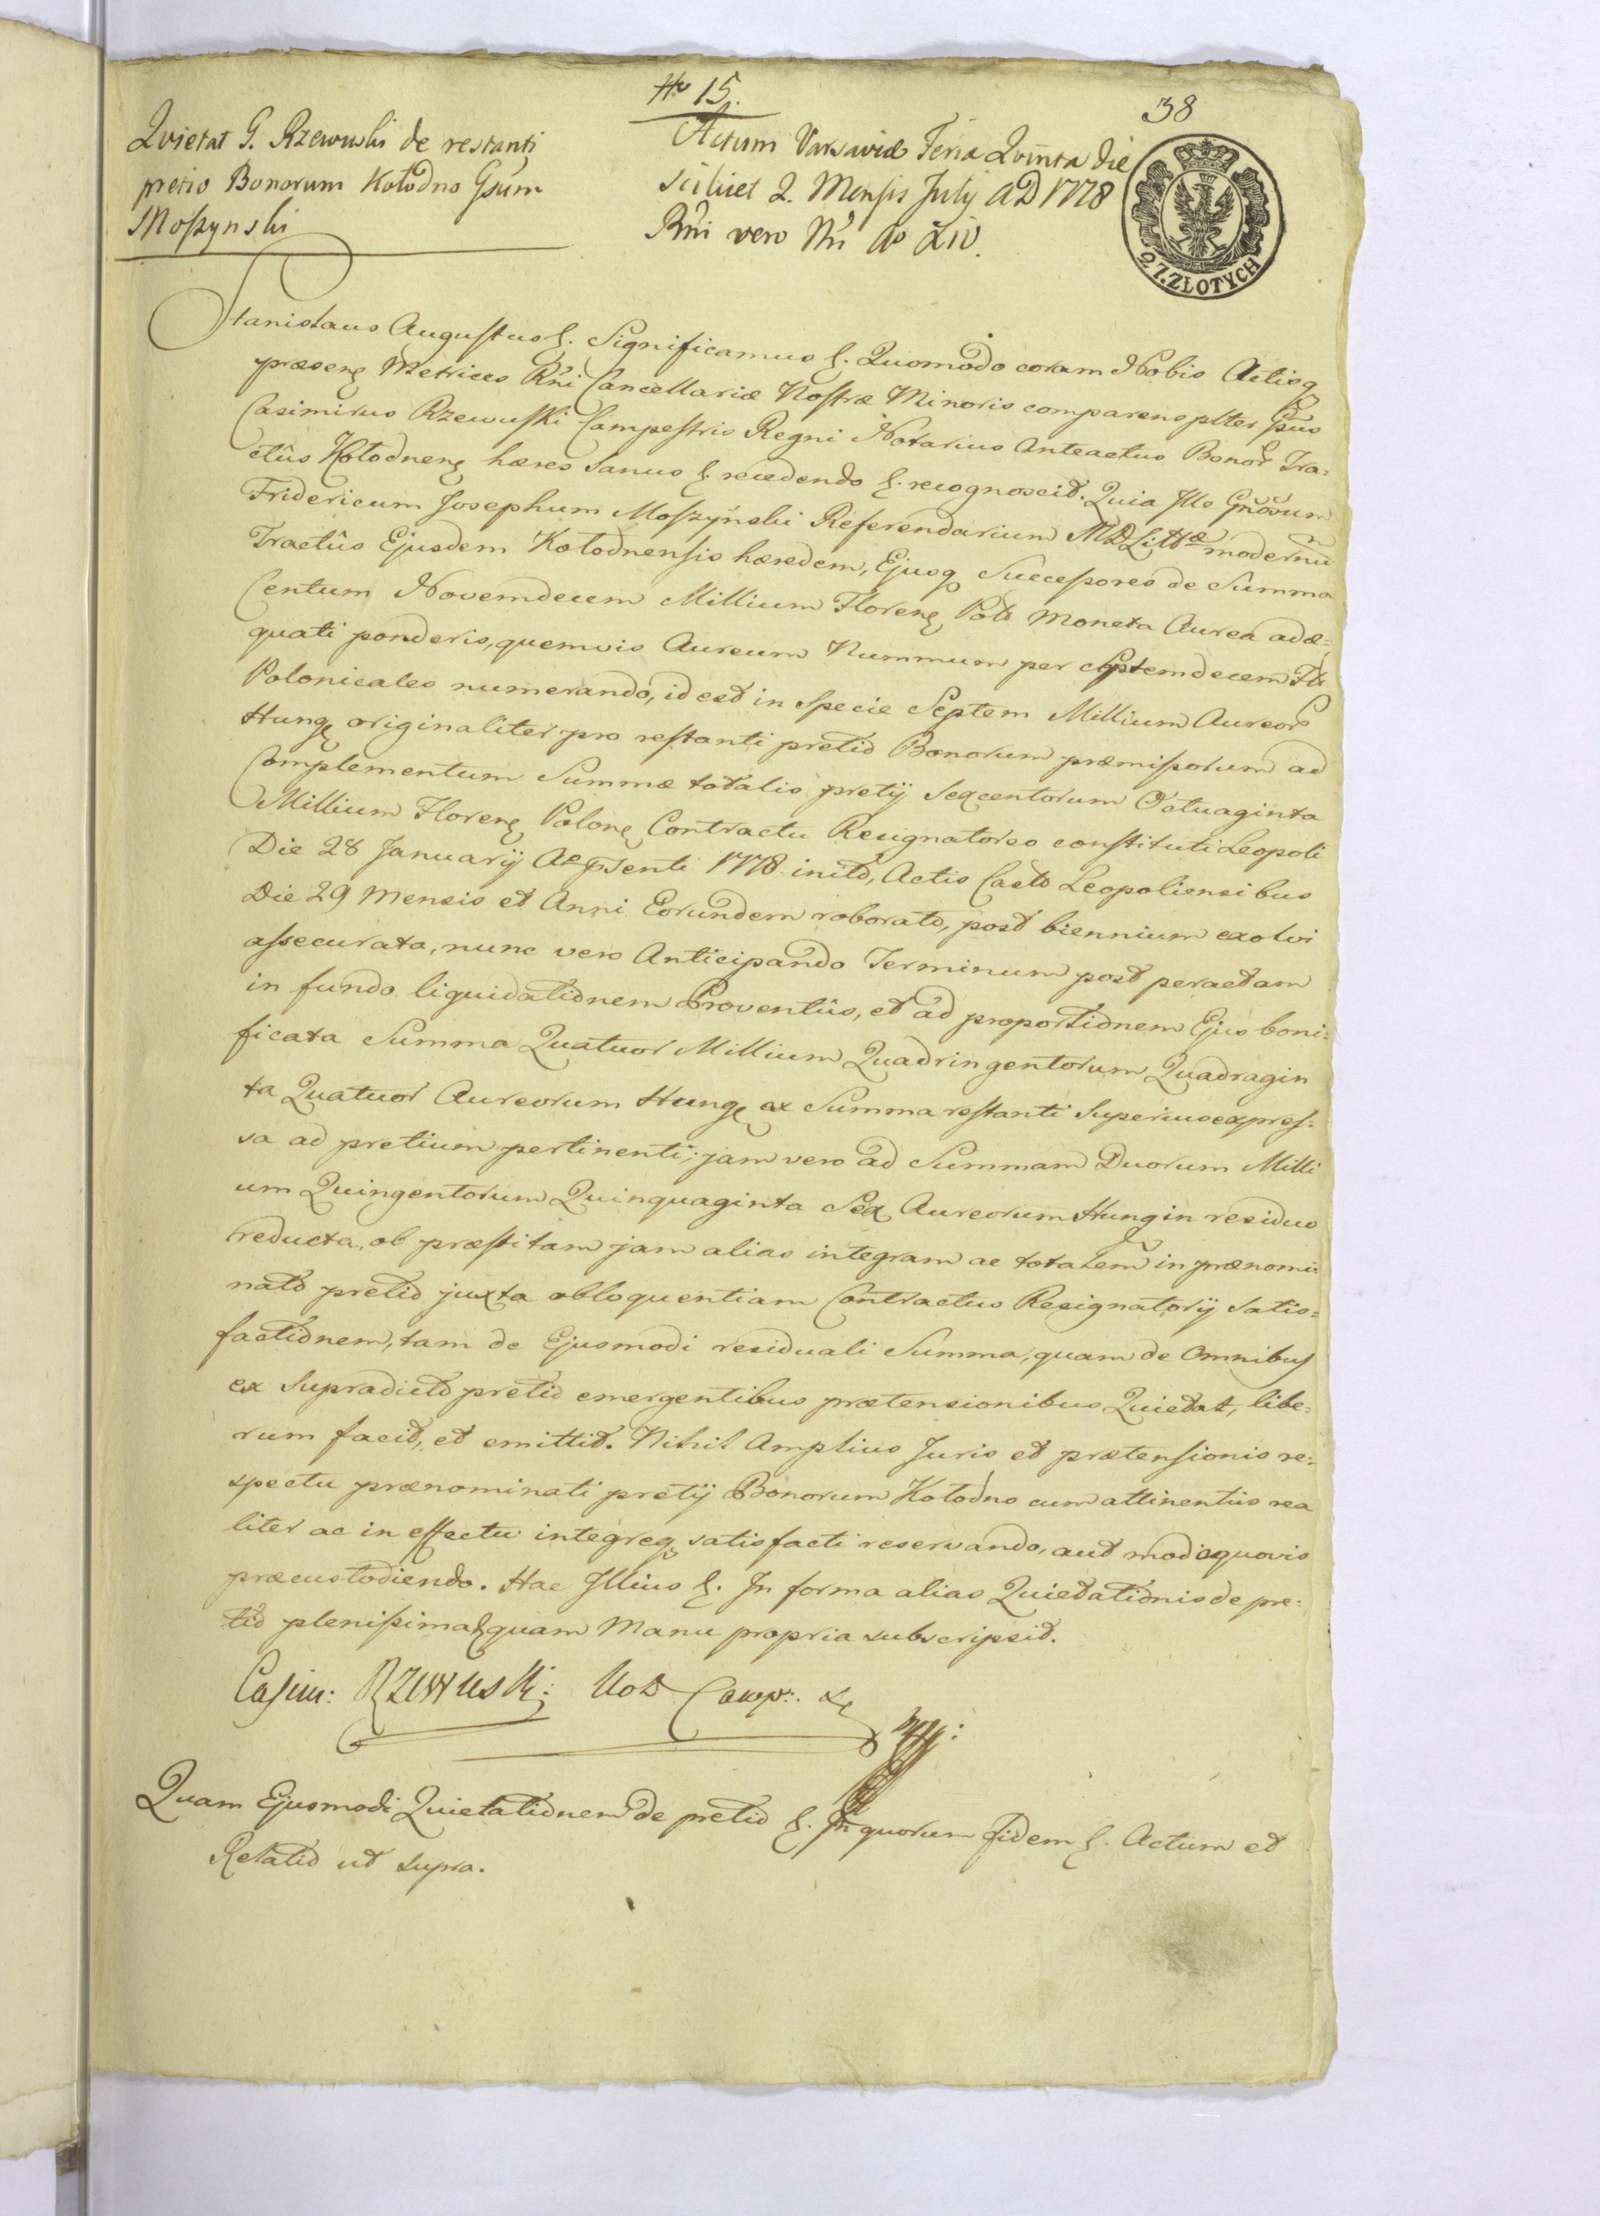 No 15.
38
Quietat G. Rzewuski de restanti
pretio Bonorum Kołodno Gsum
Moszynski
Actum Varsaviæ Feria Quinta die
scilicet 2. Mensis July AD 1778
Rni vero Nri Ao XIV.
2. Z. ZŁOTYCH
Stanislaus Augustus &. Significamus &. Quomodo coram Nobis Actisq
præsens Metrices Rni Cancellariæ Nostræ Minoris comparens plter Gsus
Casimirus Rzewuski Campestris Regni Notarius Anteactus Bonor Tra-
ctûs Kołodnens hæres Sanus &. recedendo &. recognoscit. Quia Ille Gnosum
Fridericum Josephum Moszyński Referendarium MDLittæ modernu
Tractûs Ejusdem Kołodnensis hæredem, Ejusq Successores de Summa
Centum Novemdecem Millium Floren Pol Moneta Aurea adæ-
quati ponderis, quemvis Aureum Nummum per Septemdecem Fl
Polonicales numerando, id est in Specie Septem Millium Aureor
Hung originaliter pro restanti pretio Bonorum præmissorum ad
Complementum Summæ totalis pretij Sexcentorum Octuaginta
Millium Floren Polon Contractu Resignatoreo constituti Leopoli
Die 28 Januarij Ao psenti 1778 inito, Actis Castr Leopoliensibus
Die 29 Mensis et Anni Eorundem roborato, post biennium exolvi
assecurata, nunc vero Anticipando Terminum post peractam
in fundo liquidationem Proventûs, et ad proportionem Ejus boni-
ficata Summa Quatuor Millium Quadringentorum Quadragin
ta Quatuor Aureorum Hung ex Summa restanti Superius expres-
sa ad pretium pertinenti; jam vero ad Summam Duorum Milli
um Quingentorum Quinquaginta Sex Aureorum Hung in residuo
reducta, ob præstitam jam alias integram ac totalem in prænomi-
nato pretio juxta obloquentiam Contractus Resignatorij satis-
factionem, tam de Ejusmodi residuali Summa, quam de Omnibus
ex Supradicto pretio emergentibus prætensionibus Quietat, libe-
rum facit, et emittit. Nihil Amplius Juris et prætensionis re-
spectu prænominati pretij Bonorum Kołodno cum attinentiis rea
liter ac in effectu integreq satisfacti reservando, aut modoquovis
præcustodiendo. Hac Illius &. In forma alias Quietationis de pre-
tio plenissima &quam Manu propria subscripsit.
Casim: Rzewuski Not Camp:
Quam Ejusmodi Quietationem de pretio &. In quorum fidem &. Actum et
Relatio ut supra.